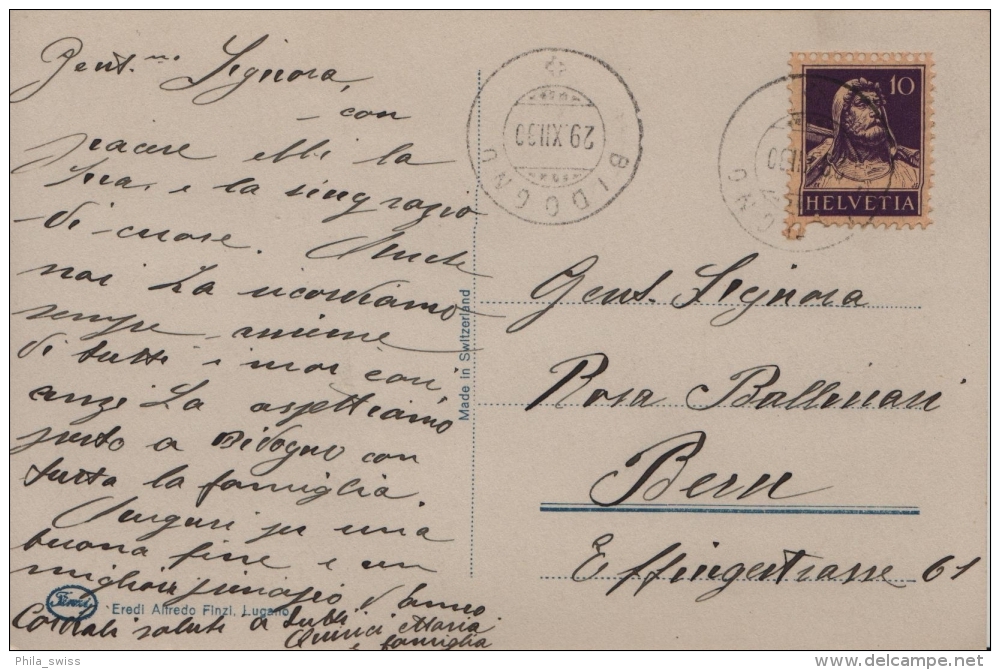 Gent.ma Signora,
con
piacere ebbi la
Sua e la ringrazio
di cuore. Anche
noi La ricordiamo
sempre assieme
di tutti i miei cari,
anzi La aspettiamo
presto a Bidogno con
tutta la famiglia.
Auguri per una
buona fine e un
miglior principio d'anno
Cordiali saluti a tutti
Maria
e famiglia
Finzi
Eredi Alfredo Finzi, Lugano
Made in Switzerland
BIDOGNO
29.XII.30
10
HELVETIA
Gent. Signora
Rosa Ballinari
Bern
Effingerstrasse 61
Phila_swiss
delcampe.net